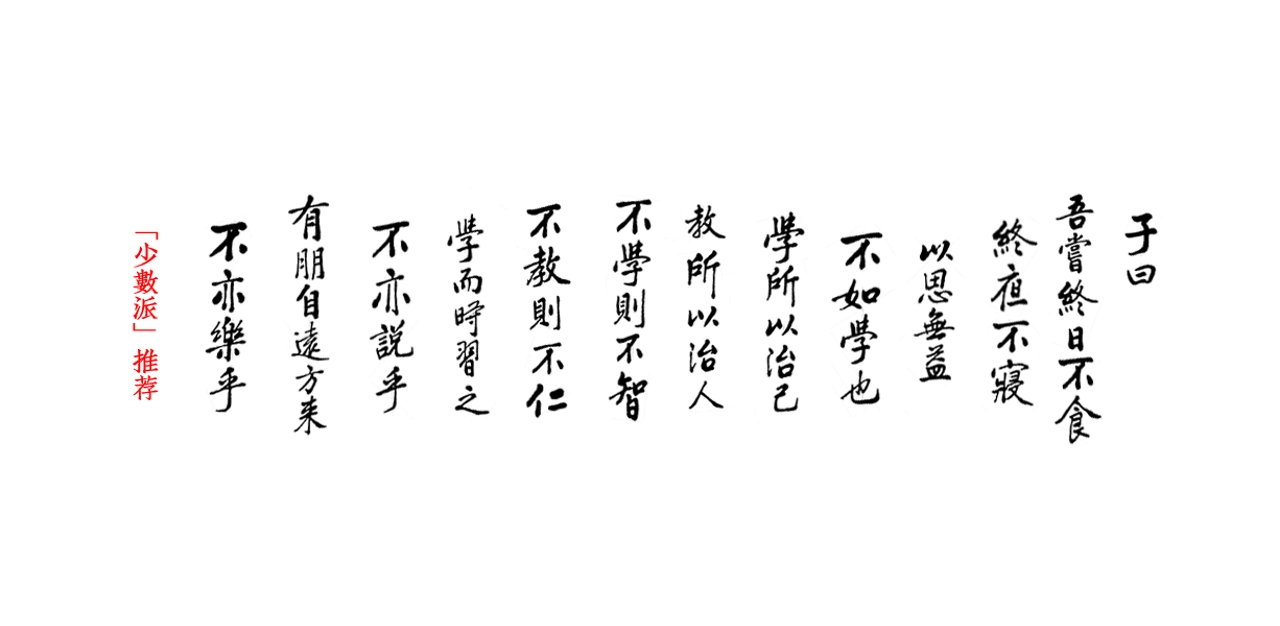 子曰
吾嘗終日不食
終夜不寢
以思無益
不如學也
學所以治己
教所以治人
不學則不智
不教則不仁
學而時習之
不亦說乎
有朋自遠方来
不亦樂乎
「少數派」推荐